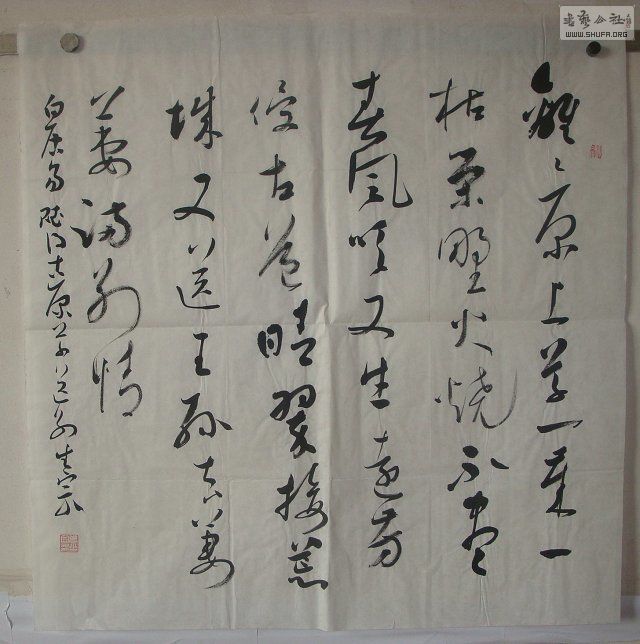 離離原上草一歲一
枯荣野火烧不盡
春風吹又生遠芳
侵古道晴翠接荒
城又送王孙去萋
萋满别情
白居易賦得古原草送别
書藝公社
WWW.SHUFA.ORG